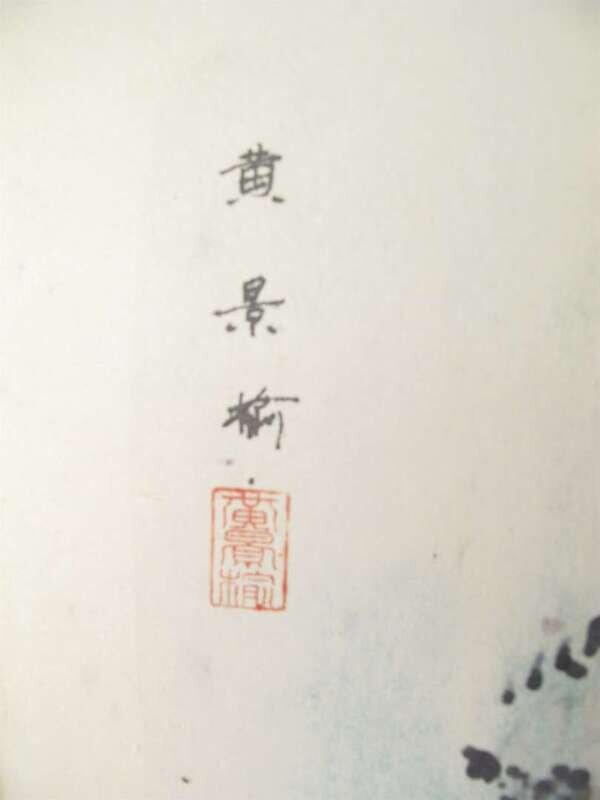 黄
景
榆
黄
景
榆